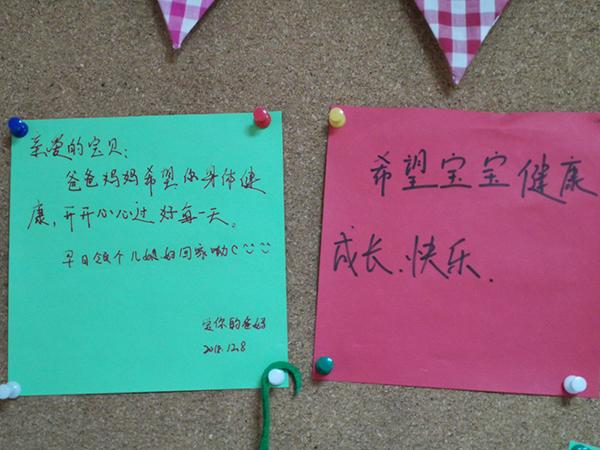 亲爱的宝贝:
爸爸妈妈希望你身体健
康,开开心心过好每一天。
早日领个儿媳妇回家呦
爱你的爸妈
希望宝宝健康
成长、快乐.